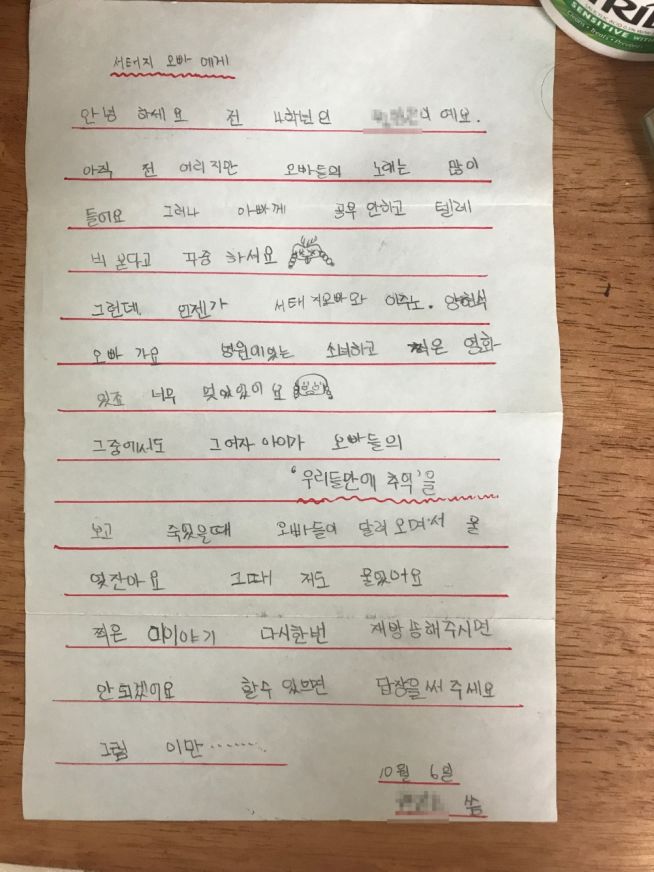 TRID
SENSITIVE WITH
서태지 오빠 에게
안녕 하세요 전 4학년인 예요.
아직 전 어리지만 오빠들의 노래는 많이
들어요 그러나 아빠께 공부 안하고 텔레
비 본다고 꾸중 하세요
그런데 언젠가 서태지오빠와 이주노. 양현석
오빠 가요 병원에있는 소녀하고 찍은 영화
있죠 너무 멋있있어요
그중에서도 그여자 아이가 오빠들의
'우리들만에 추억'을
보고 죽었을때 오빠들이 달려오며서 울
엿잔아요 그때 저도 울었어요
찍은 이야기 다시한번 재방송해주시면
안되겠어요 할수 있으면 답장을써 주세요
그럼 이만........
10월 6일
씀